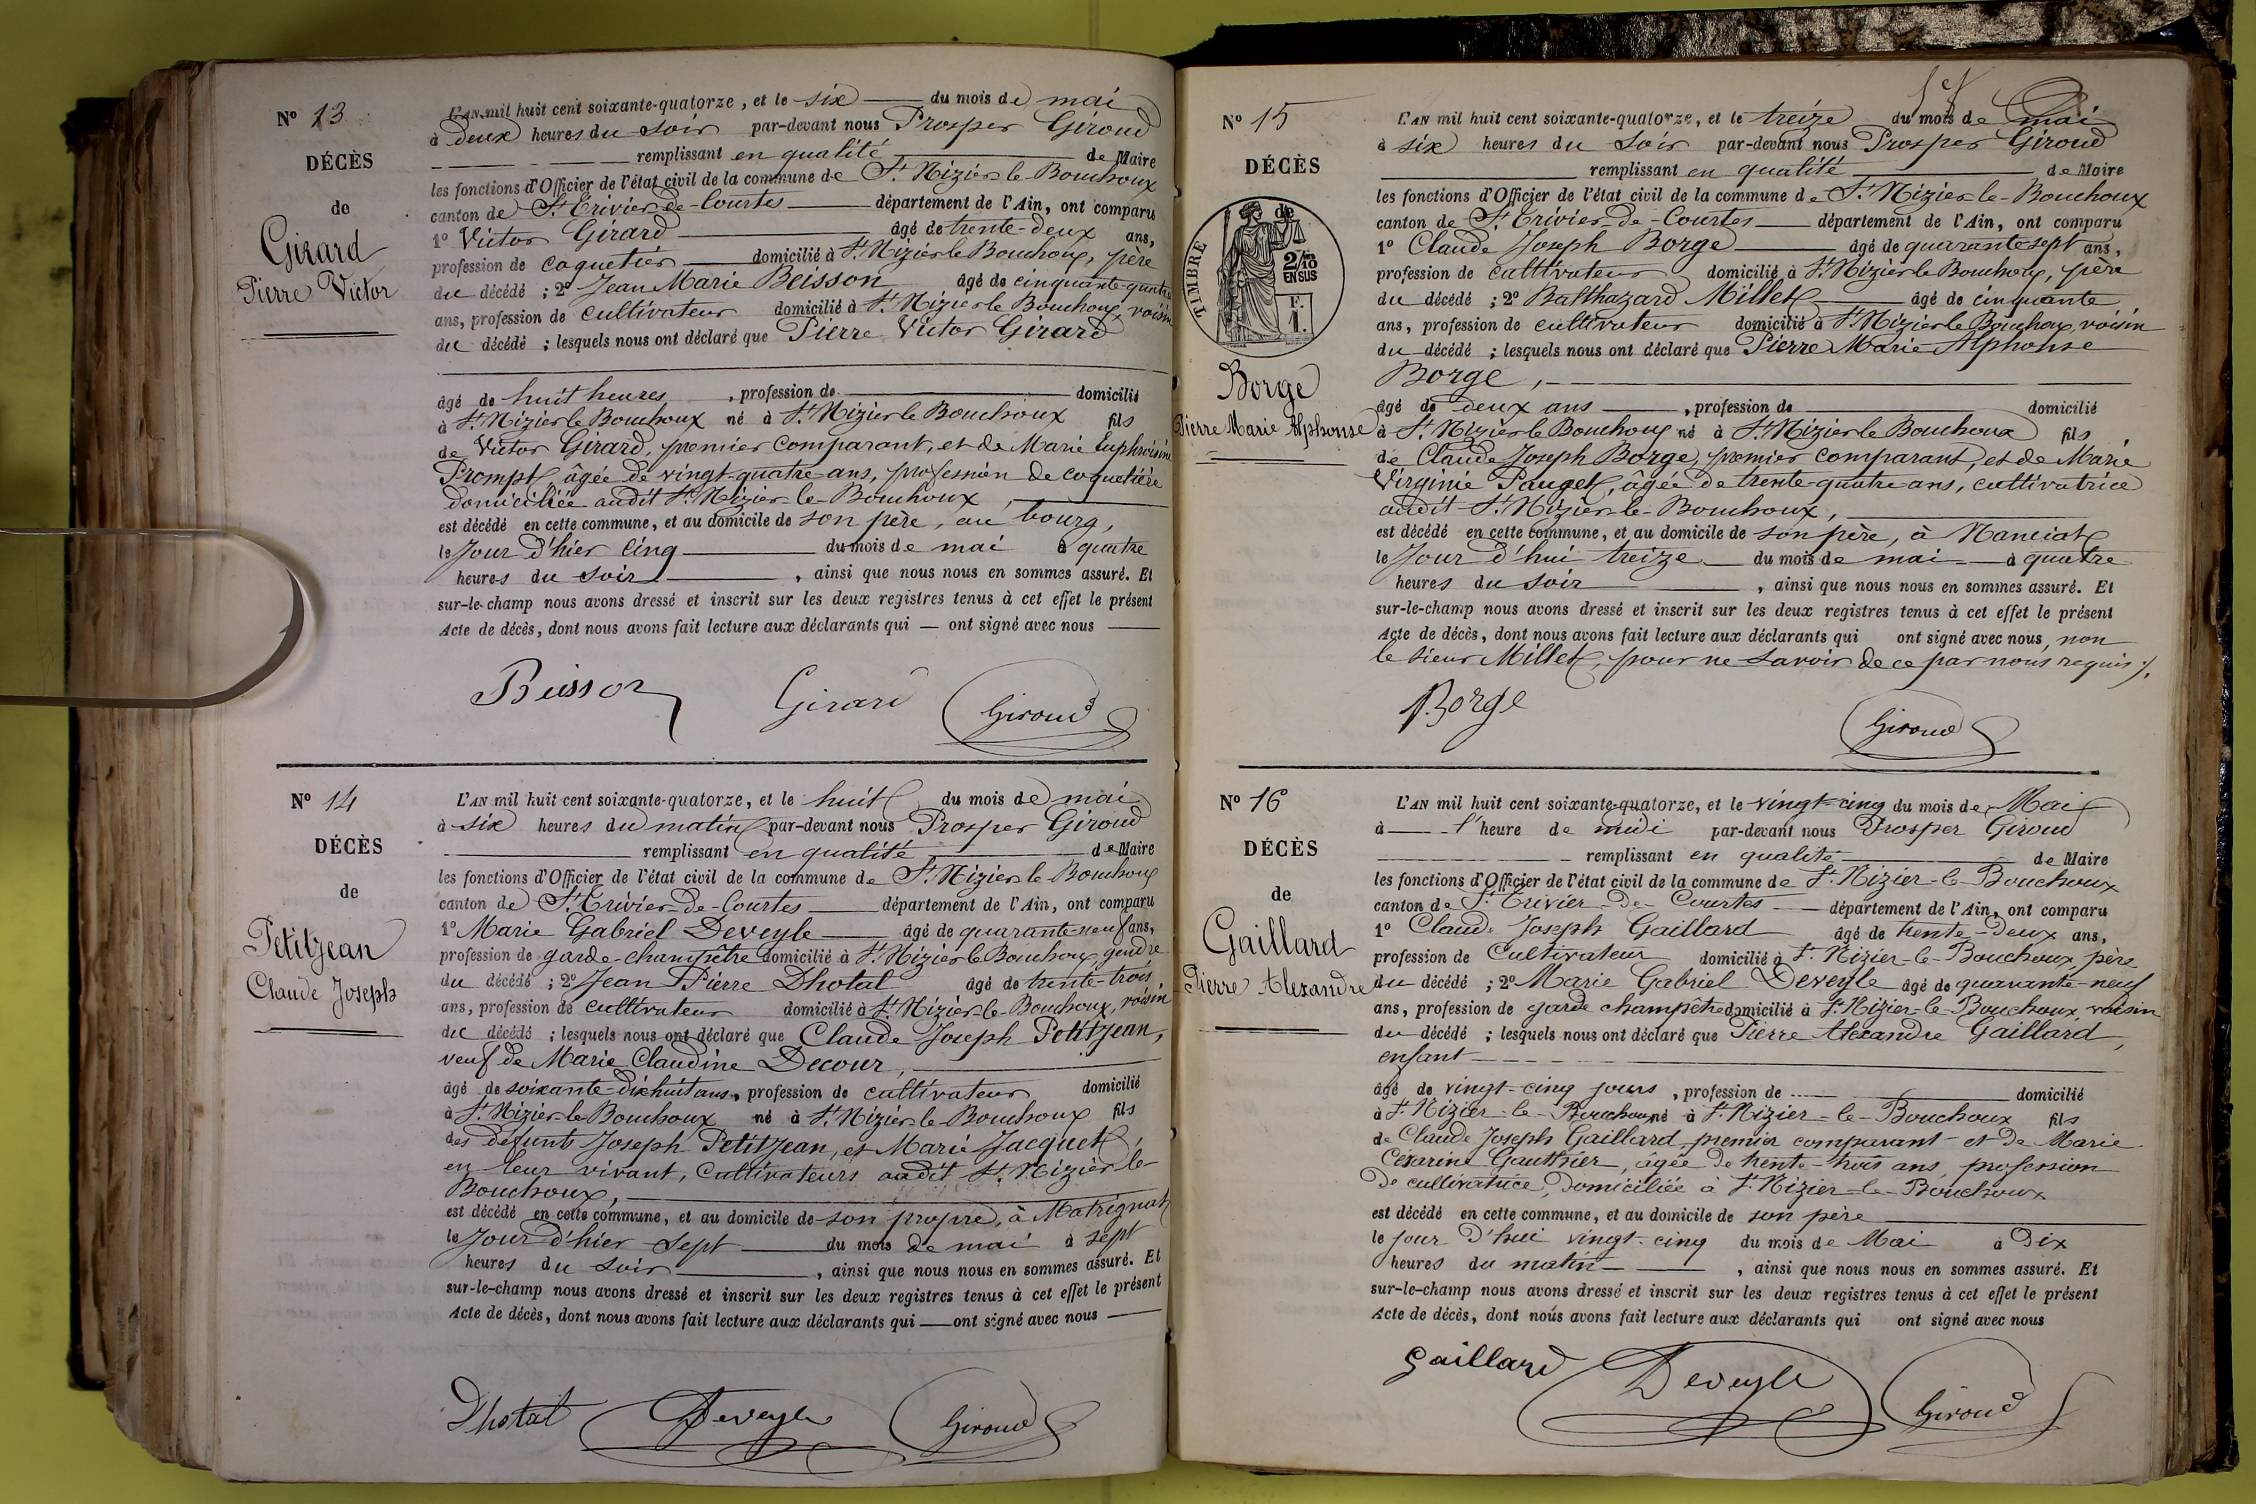 N° 13
DÉCÈS
de
Girard
Pierre Victor
L'AN mil huit cent soixante-quatorze, et le six du mois de mai
à deux heures du soir par-devant nous Prosper Giroud
remplissant en qualité de Maire
les fonctions d'Officier de l'état civil de la commune de St Nizier-le-Bouchoux
canton de St Trivier-de-Courtes département de l'Ain, ont comparu
1° Victor Girard âgé de trente-deux ans,
profession de coquetier domicilié à St Nizier le Bouchoux, père
du décédé ; 2° Jean Marie Beisson âgé de cinquante-quatre
ans, profession de cultivateur domicilié à St Nizier le Bouchoux, voisin
du décédé ; lesquels nous ont déclaré que Pierre Victor Girard
âgé de huit heures, profession de domicilié
à St Nizier le Bouchoux né à St Nizier le Bouchoux fils
de Victor Girard, premier comparant, et de Marie Euphroisine
Prompt âgée de vingt-quatre-ans, profession de coquetière
domiciliée audit St Nizier-le-Bouchoux,
est décédé en cette commune, et au domicile de son père, au bourg,
le jour d'hier cinq du mois de mai à quatre
heures du soir, ainsi que nous nous en sommes assuré. Et
sur-le-champ nous avons dressé et inscrit sur les deux registres tenus à cet effet le présent
Acte de décès, dont nous avons fait lecture aux déclarants qui — ont signé avec nous
Beisson Girard Giroud
N° 14
DÉCÈS
de
Petitjean
Claude Joseph
L'AN mil huit cent soixante-quatorze, et le huit du mois de mai
à six heures du matin par-devant nous Prosper Giroud
remplissant en qualité de Maire
les fonctions d'Officier de l'état civil de la commune de St Nizier le Bouchoux
canton de St Trivier-de-Courtes département de l'Ain, ont comparu
1° Marie Gabriel Deveyle âgé de quarante-neuf ans,
profession de garde-champêtre domicilié à St Nizier le Bouchoux, gendre
du décédé ; 2° Jean Pierre Dhotal âgé de trente-trois
ans, profession de cultivateur domicilié à St Nizier-le-Bouchoux, voisin
du décédé ; lesquels nous ont déclaré que Claude Joseph Petitjean,
veuf de Marie Claudine Decour,
âgé de soixante-dix huit ans, profession de cultivateur domicilié
à St Nizier le Bouchoux né à St Nizier le Bouchoux fils
des défunts Joseph Petitjean, et Marie Jacquet,
en leur vivant, cultivateurs audit St Nizier le
Bouchoux,
est décédé en cette commune, et au domicile de son propre, à Matrignat
le jour d'hier sept du mois de mai à sept
heures du soir, ainsi que nous nous en sommes assuré. Et
sur-le-champ nous avons dressé et inscrit sur les deux registres tenus à cet effet le présent
Acte de décès, dont nous avons fait lecture aux déclarants qui — ont signé avec nous
Dhotal Deveyle Giroud
N° 15
DÉCÈS
de
TIMBRE
2/10
EN SUS
F.
1.
Borge
Pierre Marie Alphonse
L'AN mil huit cent soixante-quatorze, et le treize du mois de mai
à six heures du soir par-devant nous Prosper Giroud
remplissant en qualité de Maire
les fonctions d'Officier de l'état civil de la commune de St Nizier-le-Bouchoux
canton de St Trivier-de-Courtes département de l'Ain, ont comparu
1° Claude Joseph Borge âgé de quarante sept ans,
profession de cultivateur domicilié à St Nizier le Bouchoux, père
du décédé ; 2° Balthazard Millet âgé de cinquante
ans, profession de cultivateur domicilié à St Nizier le Bouchoux, voisin
du décédé ; lesquels nous ont déclaré que Pierre Marie Alphonse
Borge,
âgé de deux ans, profession de domicilié
à St Nizier le Bouchoux né à St Nizier le Bouchoux fils
de Claude Joseph Borge, premier comparant, et de Marie
Virginie Pauget, âgée de trente-quatre-ans, cultivatrice
audit St Nizier-le-Bouchoux,
est décédé en cette commune, et au domicile de son père, à Nanciat
le jour d'hui treize du mois de mai à quatre
heures du soir, ainsi que nous nous en sommes assuré. Et
sur-le-champ nous avons dressé et inscrit sur les deux registres tenus à cet effet le présent
Acte de décès, dont nous avons fait lecture aux déclarants qui ont signé avec nous, non
le sieur Millet, pour ne savoir de ce par nous requis ./.
Borge Giroud
N° 16
DÉCÈS
de
Gaillard
Pierre Alexandre
L'AN mil huit cent soixante-quatorze, et le vingt-cinq du mois de Mai
à l'heure de midi par-devant nous Prosper Giroud
remplissant en qualité de Maire
les fonctions d'Officier de l'état civil de la commune de St Nizier-le-Bouchoux
canton de St Trivier-de-Courtes département de l'Ain, ont comparu
1° Claude Joseph Gaillard âgé de trente-deux ans,
profession de Cultivateur domicilié à St Nizier-le-Bouchoux père
du décédé ; 2° Marie Gabriel Deveyle âgé de quarante-neuf
ans, profession de garde champêtre domicilié à St Nizier-le-Bouchoux, voisin
du décédé ; lesquels nous ont déclaré que Pierre Alexandre Gaillard,
enfant
âgé de vingt-cinq jours, profession de domicilié
à St Nizier-le-Bouchoux né à St Nizier-le-Bouchoux fils
de Claude Joseph Gaillard premier comparant et de Marie
Césarine Gauthier, âgée de trente-trois ans, profession
de cultivatrice, domiciliée à St Nizier-le-Bouchoux
est décédé en cette commune, et au domicile de son père
le jour d'hui vingt-cinq du mois de Mai à Dix
heures du matin, ainsi que nous nous en sommes assuré. Et
sur-le-champ nous avons dressé et inscrit sur les deux registres tenus à cet effet le présent
Acte de décès, dont nous avons fait lecture aux déclarants qui ont signé avec nous
Gaillard Deveyle Giroud